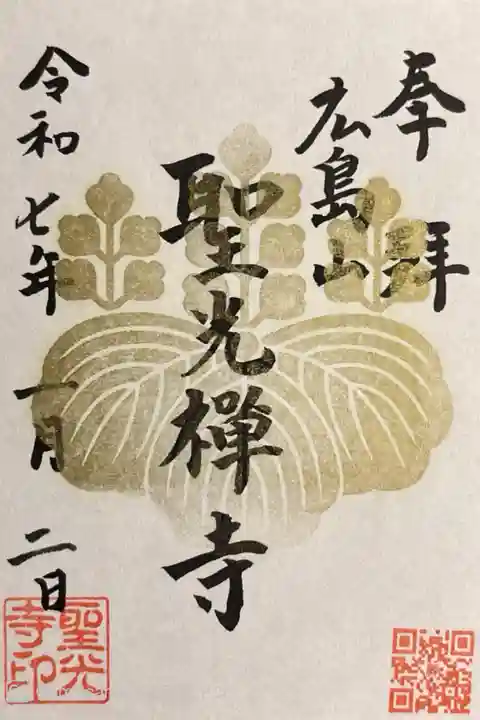 奉拝
広島山
聖光禅寺
令和七年一月二日
聖光
寺印